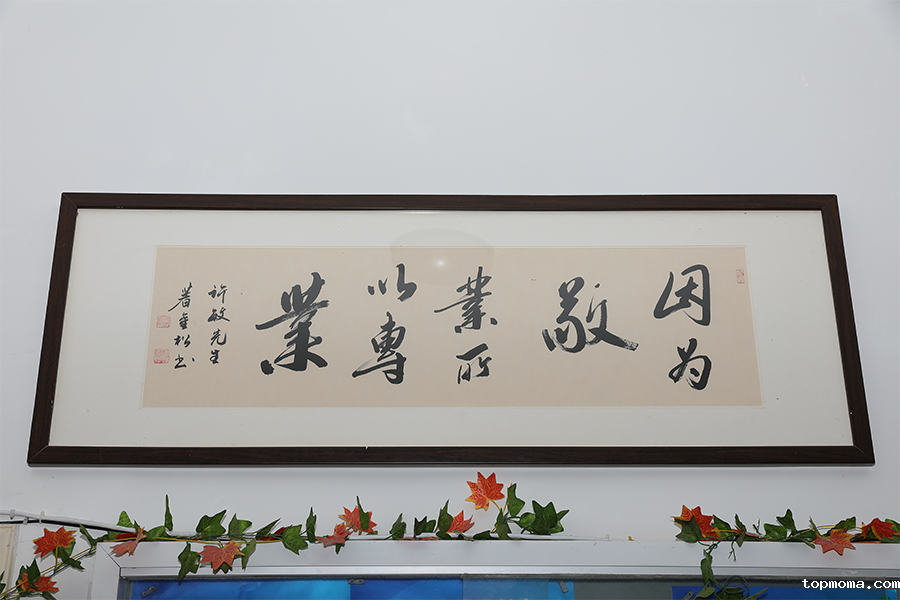 因为
敬
業所
以專
業
许敏先生
金松书
topmoma.com